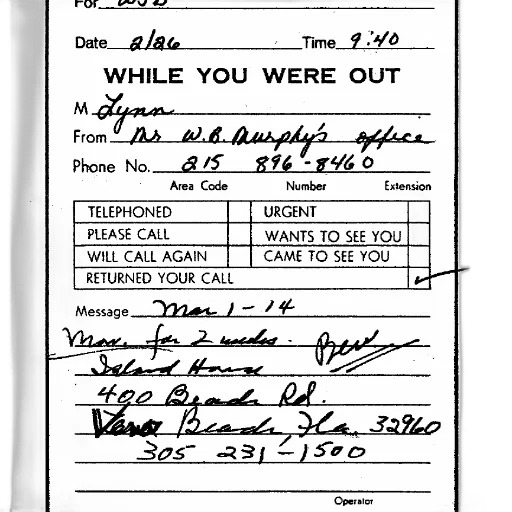 For WJB
Date 2/26 Time 9:40
WHILE YOU WERE OUT
M Lynn
From Mr W.B. Murphy's office
Phone No. 215 896-8460
Area Code Number Extension
TELEPHONED URGENT
PLEASE CALL WANTS TO SEE YOU
WILL CALL AGAIN CAME TO SEE YOU
RETURNED YOUR CALL ✓
Message Mar 1-14
Mon. for 2 weeks.
Island House
400 Beach Rd.
Vero Beach, Fla. 32960
305 231-1500
Operator